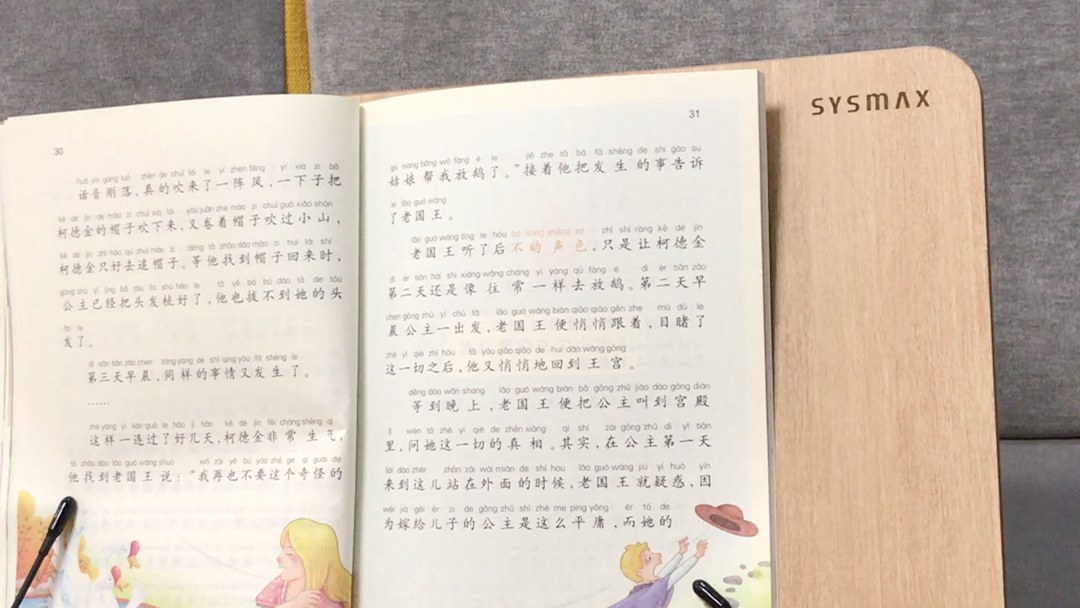 30
huà yīn gāng luò zhēn de chuī lái le yí zhèn fēng yí xià zi bǎ
话音刚落，真的吹来了一阵风，一下子把
kē dé jīn de mào zi chuī xià lái yòu juǎn zhe mào zi chuī guò xiǎo shān
柯德金的帽子吹下来，又卷着帽子吹过小山，
kē dé jīn zhǐ hǎo qù zhuī mào zi děng tā zhǎo dào mào zi huí lái shí
柯德金只好去追帽子。等他找到帽子回来时，
gōng zhǔ yǐ jīng bǎ tóu fa shū hǎo le tā yě bá bú dào tā de tóu
公主已经把头发梳好了，他也拔不到她的头
fa le
发了。
dì sān tiān zǎo chen tóng yàng de shì qing yòu fā shēng le
第三天早晨，同样的事情又发生了。
……
zhè yàng yì lián guò le hǎo jǐ tiān kē dé jīn fēi cháng shēng qì
这样一连过了好几天，柯德金非常生气，
tā zhǎo dào lǎo guó wáng shuō wǒ zài yě bú yào zhè ge qí guài de
他找到老国王说：“我再也不要这个奇怪的
31
gū niang bāng wǒ fàng é le jiē zhe tā bǎ fā shēng de shì gào su
姑娘帮我放鹅了。”接着他把发生的事告诉
le lǎo guó wáng
了老国王。
lǎo guó wáng tīng le hòu bú dòng shēng sè zhǐ shì ràng kē dé jīn
老国王听了后不动声色，只是让柯德金
dì èr tiān hái shi xiàng wǎng cháng yí yàng qù fàng é dì èr tiān zǎo
第二天还是像往常一样去放鹅。第二天早
chen gōng zhǔ yì chū fā lǎo guó wáng biàn qiāo qiāo gēn zhe mù dǔ le
晨公主一出发，老国王便悄悄跟着，目睹了
zhè yí qiè zhī hòu tā yòu qiāo qiāo de huí dào wáng gōng
这一切之后，他又悄悄地回到王宫。
děng dào wǎn shang lǎo guó wáng biàn bǎ gōng zhǔ jiào dào gōng diàn
等到晚上，老国王便把公主叫到宫殿
li wèn tā zhè yí qiè de zhēn xiàng qí shí zài gōng zhǔ dì yī tiān
里，问她这一切的真相。其实，在公主第一天
lái dào zhèr zhàn zài wài miàn de shí hou lǎo guó wáng jiù yí huò yīn
来到这儿站在外面的时候，老国王就疑惑，因
wèi jià gěi ér zi de gōng zhǔ shì zhè me píng yōng ér tā de
为嫁给儿子的公主是这么平庸，而她的
SYSMAX